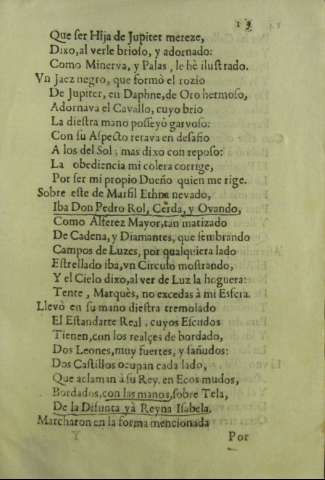 19
Que ser Hija de Jupiter mereze,
Dixo, al verle brioso, y adornado:
Como Minerva, y Palas, le hè ilustrado.
Vn jaez negro, que formò el rozio
De Jupiter, en Daphne, de Oro hermoso,
Adornava el Cavallo, cuyo brio
La diestra mano posseyò garvoso:
Con su Aspecto retava en desafio
A los del Sol; mas dixo con reposo:
La obediencia mi colera corrige,
Por ser mi propio Dueño quien me rige.
Sobre este de Marfil Ethna nevado,
Iba Don Pedro Rol, Cerda, y Ovando,
Como Alferez Mayor, tan matizado
De Cadena, y Diamantes, que sembrando
Campos de Luzes, por qualquiera lado
Estrellado iba, vn Circulo mostrando,
Y el Cielo dixo, al ver de Luz la hoguera:
Tente, Marquès, no excedas à mi Esfera.
Llevò en su mano diestra tremolado
El Estandarte Real, cuyos Escudos
Tienen, con los realçes de bordado,
Dos Leones, muy fuertes, y sañudos:
Dos Castillos ocupan cada lado,
Que aclaman à su Rey, en Ecos mudos,
Bordados, con las manos, sobre Tela,
De la Difunta yà Reyna Isabela.
Marcharon en la forma mencionada
Y Por